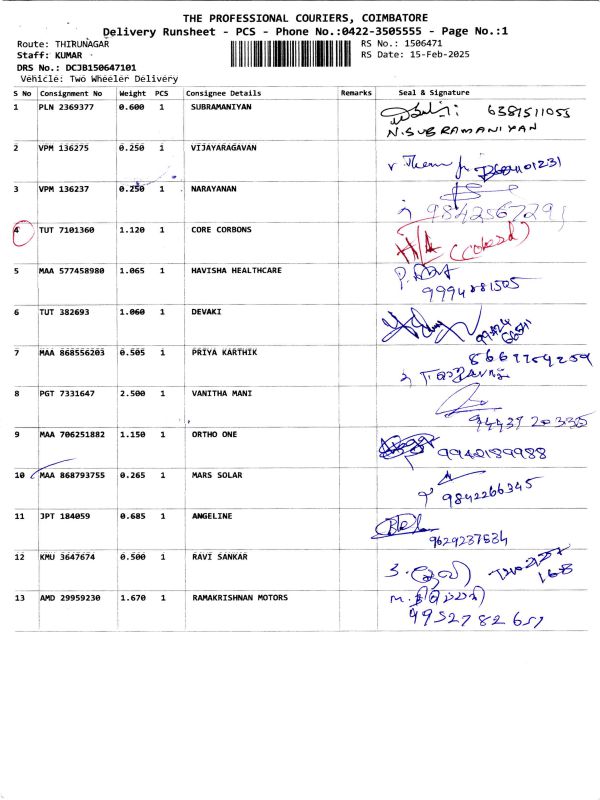 THE PROFESSIONAL COURIERS, COIMBATORE
Delivery Runsheet - PCS - Phone No.:0422-3505555 - Page No.:1
Route: THIRUNAGAR RS No.: 1506471
Staff: KUMAR RS Date: 15-Feb-2025
DRS No.: DCJB150647101
Vehicle: Two Wheeler Delivery
S No Consignment No Weight PCS Consignee Details Remarks Seal & Signature
1 PLN 2369377 0.600 1 SUBRAMANIYAN 6381511055
N.SUBRAMANIYAN
2 VPM 136275 0.250 1 VIJAYARAGAVAN
3 VPM 136237 0.250 1 NARAYANAN
9842567291
4 TUT 7101360 1.120 1 CORE CORBONS
5 MAA 577458980 1.065 1 HAVISHA HEALTHCARE
9994881505
6 TUT 382693 1.060 1 DEVAKI
7 MAA 868556203 0.505 1 PRIYA KARTHIK 8667754259
8 PGT 7331647 2.500 1 VANITHA MANI
9443720335
9 MAA 706251882 1.150 1 ORTHO ONE 9940189988
10 MAA 868793755 0.265 1 MARS SOLAR 9842266345
11 JPT 184059 0.685 1 ANGELINE
9629237634
12 KMU 3647674 0.500 1 RAVI SANKAR
168
13 AMD 29959230 1.670 1 RAMAKRISHNAN MOTORS
4952782651